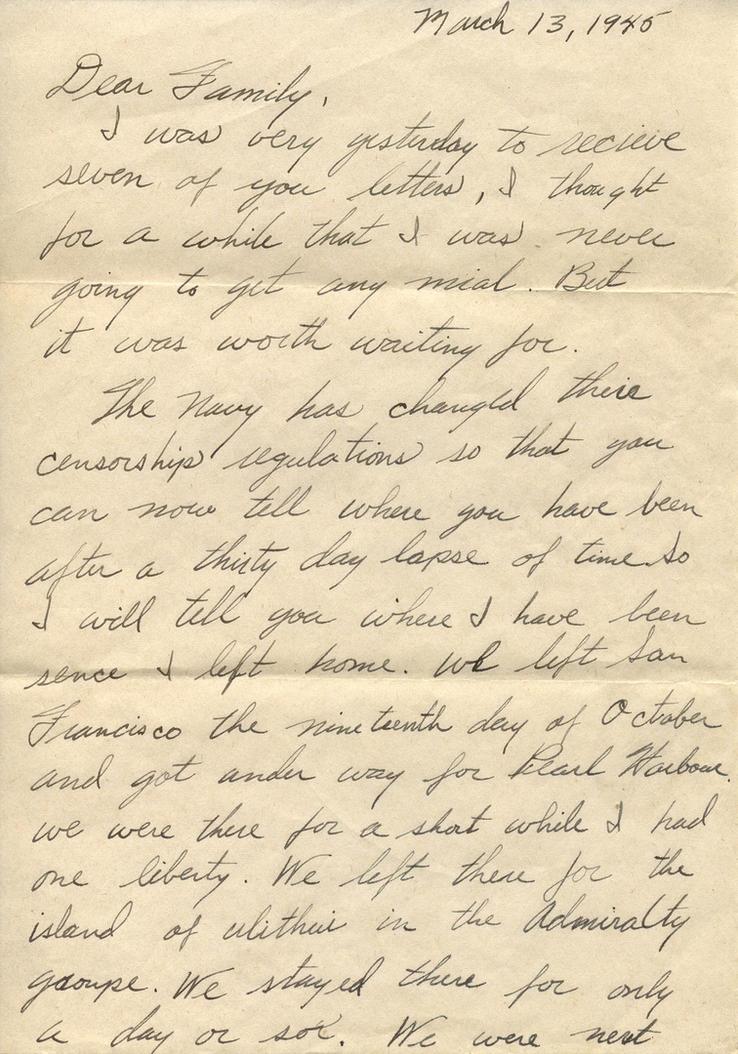 March 13, 1945
Dear Family,
I was very yesterday to recieve
seven of you letters, I thought
for a while that I was never
going to get any mial. But
it was worth waiting for.
The Navy has changed theie
censorship regulations so that you
can now tell where you have been
after a thirty day lapse of time so
I will tell you where I have been
sence I left home. We left San
Francisco the nineteenth day of October
and got under way for Pearl Harbour.
we were there for a short while I had
one liberty. We left there for the
island of ulithie in the Admiralty
groupe. We stayed there for only
a day or so. We were next